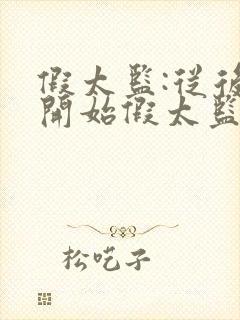 假太監:從後
開始假太監
松吃子